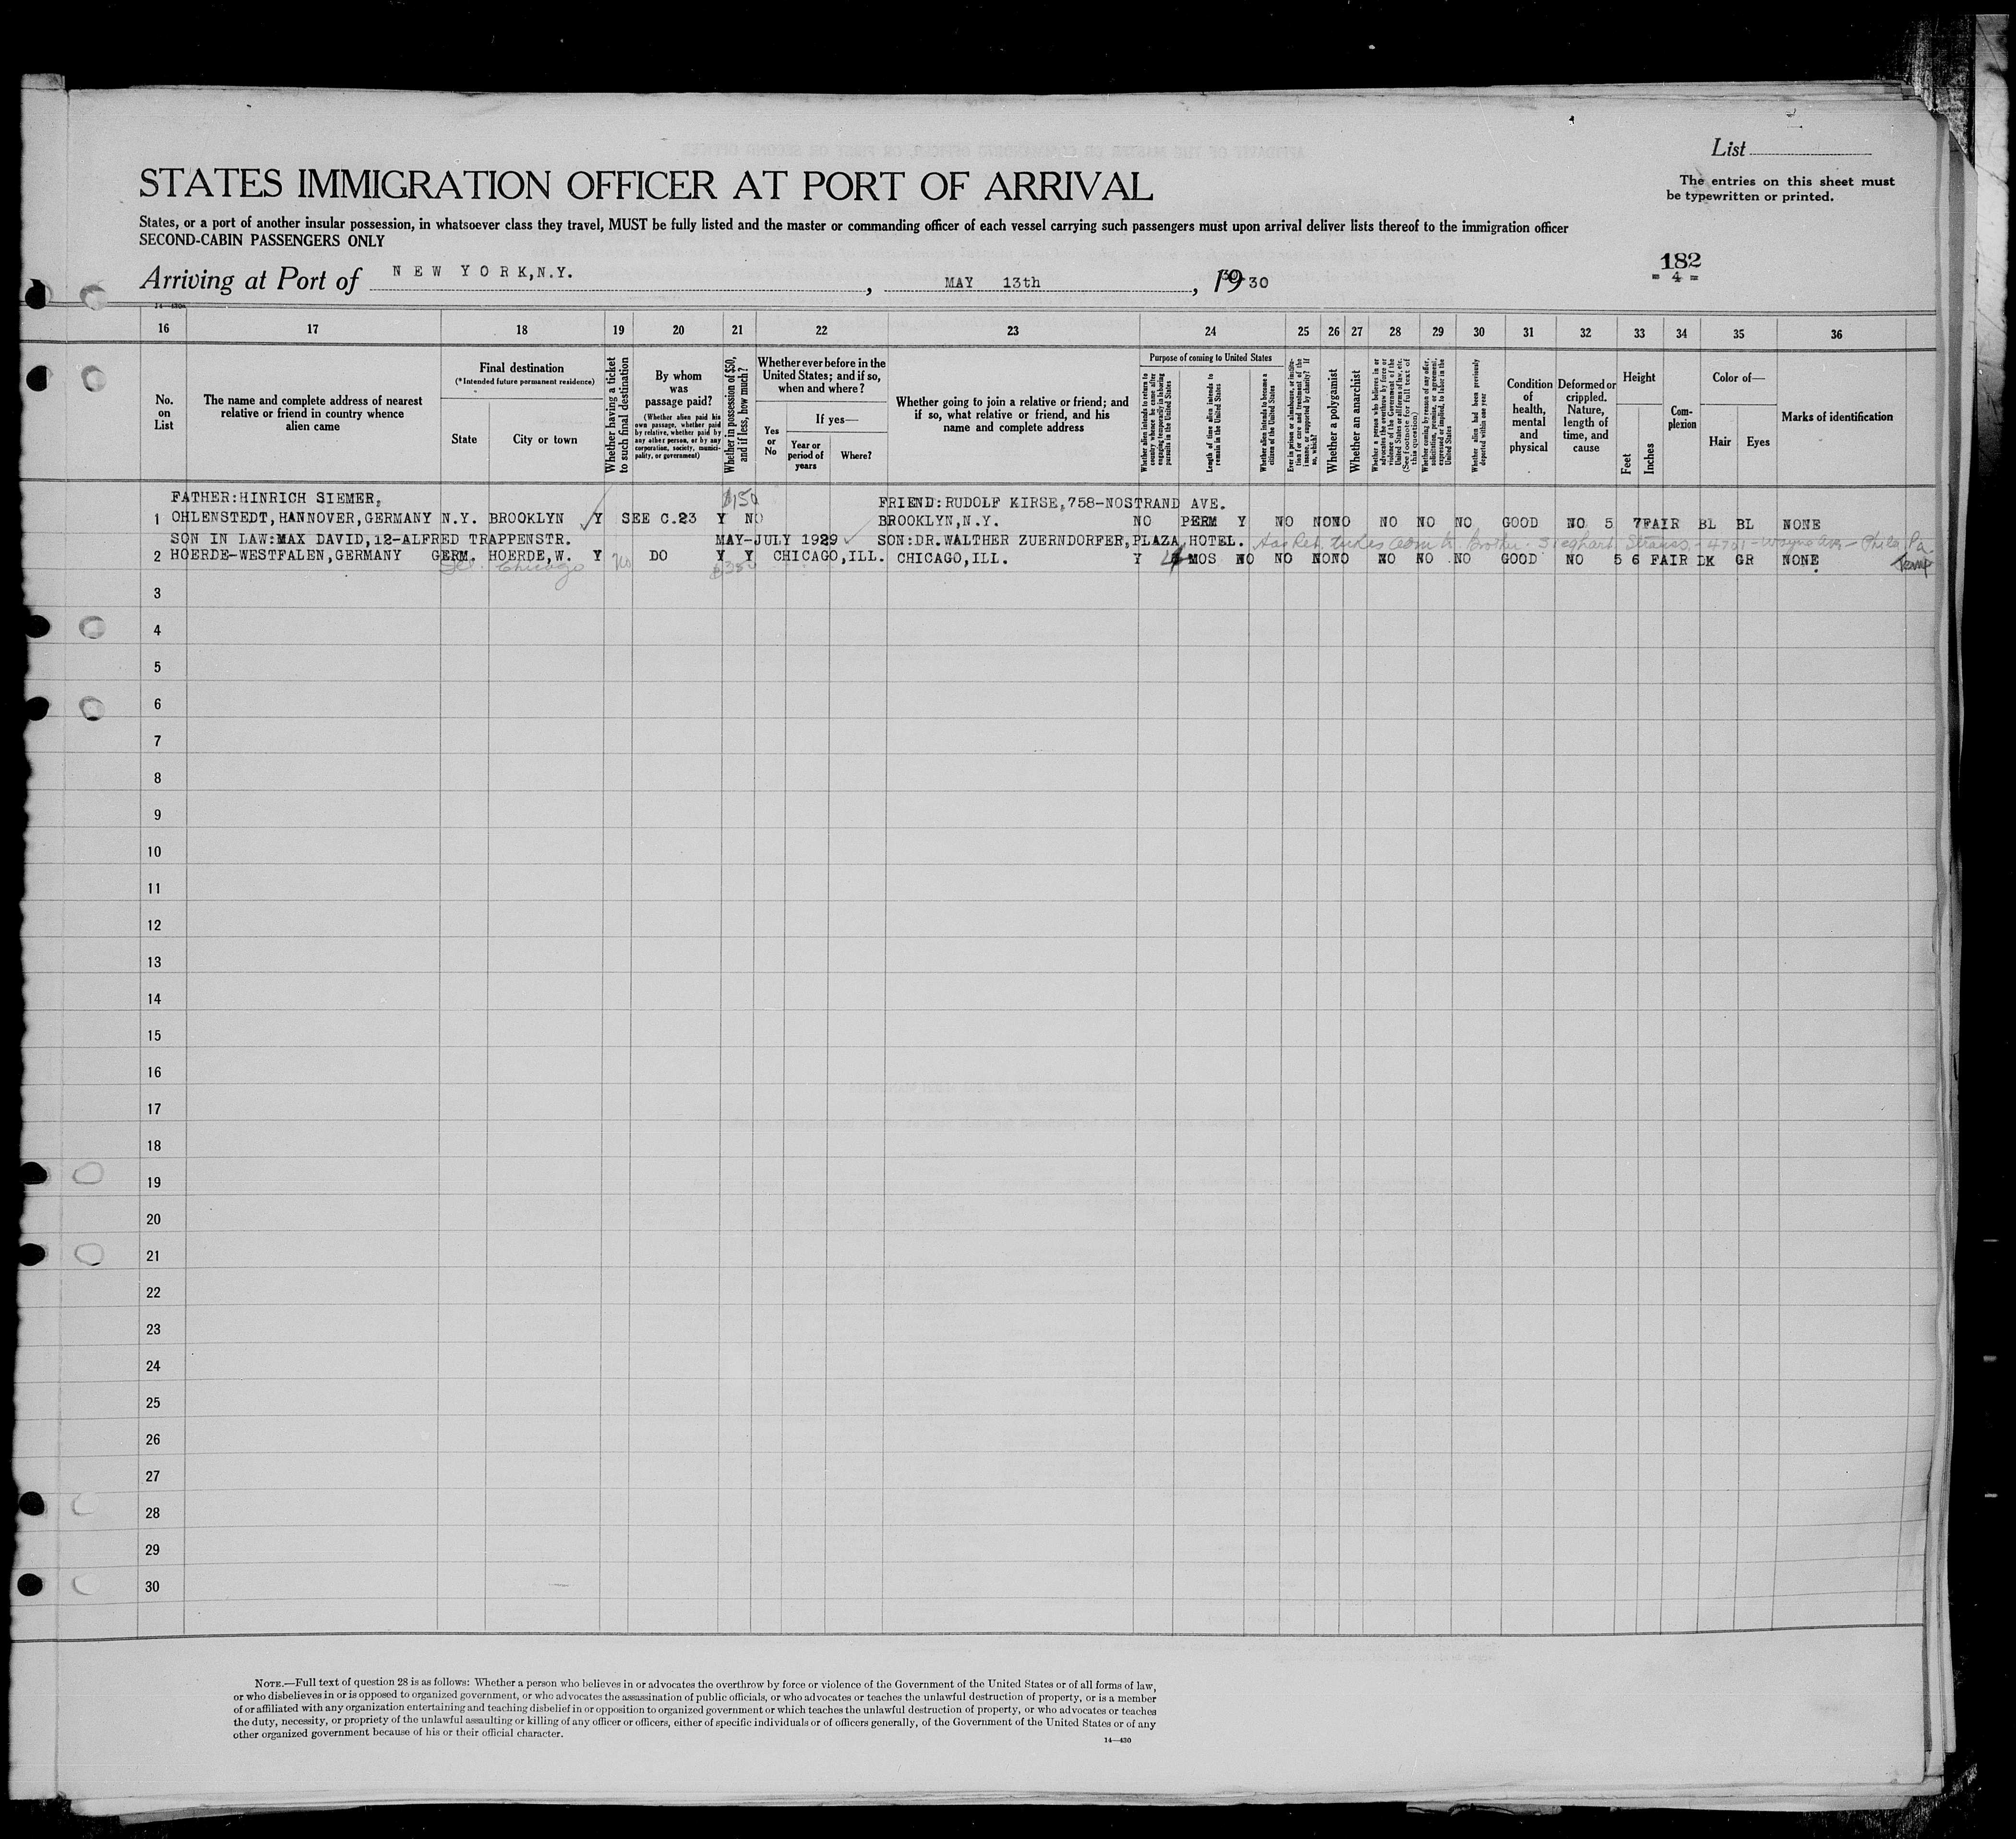 List
The entries on this sheet must
be typewritten or printed.
STATES IMMIGRATION OFFICER AT PORT OF ARRIVAL
States, or a port of another insular possession, in whatsoever class they travel, MUST be fully listed and the master or commanding officer of each vessel carrying such passengers must upon arrival deliver lists thereof to the immigration officer
SECOND-CABIN PASSENGERS ONLY
182
= 4 =
Arriving at Port of NEW YORK,N.Y. , MAY 13th , 19 30
14—430
16 17 18 19 20 21 22 23 24 25 26 27 28 29 30 31 32 33 34 35 36
No.
on
List
The name and complete address of nearest
relative or friend in country whence
alien came
Final destination
(*Intended future permanent residence)
State
City or town
Whether having a ticket
to such final destination
By whom
was
passage paid?
(Whether alien paid his
own passage, whether paid
by relative, whether paid by
any other person, or by any
corporation, society, munici-
pality, or government)
Whether in possession of $50,
and if less, how much?
Whether ever before in the
United States; and if so,
when and where?
Yes
or
No
If yes—
Year or
period of
years
Where?
Whether going to join a relative or friend; and
if so, what relative or friend, and his
name and complete address
Purpose of coming to United States
Whether alien intends to return to
country whence he came after
engaging temporarily in laboring
pursuits in the United States
Length of time alien intends to
remain in the United States
Whether alien intends to become a
citizen of the United States
Ever in prison or almshouse, or institu-
tion for care and treatment of the
insane, or supported by charity? If
so, which?
Whether a polygamist
Whether an anarchist
Whether a person who believes in or
advocates the overthrow by force or
violence of the Government of the
United States or all forms of law, etc.
(See footnote for full text of
this question)
Whether coming by reason of any offer,
solicitation, promise, or agreement,
expressed or implied, to labor in the
United States
Whether alien had been previously
deported within one year
Condition
of
health,
mental
and
physical
Deformed or
crippled.
Nature,
length of
time, and
cause
Height
Feet
Inches
Com-
plexion
Color of—
Hair
Eyes
Marks of identification
FATHER:HINRICH SIEMER, $150 FRIEND:RUDOLF KIRSE,758-NOSTRAND AVE.
1 OHLENSTEDT,HANNOVER,GERMANY N.Y. BROOKLYN Y SEE C.23 Y NO BROOKLYN,N.Y. NO PERM Y NO NO NO NO NO NO GOOD NO 5 7 FAIR BL BL NONE
SON IN LAW:MAX DAVID,12-ALFRED TRAPPENSTR. MAY-JULY 1929 SON:DR.WALTHER ZUERNDORFER,PLAZA HOTEL. Brother Sieghart Strauss - 4701 - Wayne Ave - Phila Pa.
2 HOERDE-WESTFALEN,GERMANY GERM. HOERDE,W. Y No DO Y Y CHICAGO,ILL. CHICAGO,ILL. Y 4 MOS NO NO NO NO NO NO NO GOOD NO 5 6 FAIR DK GR NONE Temp
Ill. Chicago
3
4
5
6
7
8
9
10
11
12
13
14
15
16
17
18
19
20
21
22
23
24
25
26
27
28
29
30
NOTE.—Full text of question 28 is as follows: Whether a person who believes in or advocates the overthrow by force or violence of the Government of the United States or of all forms of law,
or who disbelieves in or is opposed to organized government, or who advocates the assassination of public officials, or who advocates or teaches the unlawful destruction of property, or is a member
of or affiliated with any organization entertaining and teaching disbelief in or opposition to organized government or which teaches the unlawful destruction of property, or who advocates or teaches
the duty, necessity, or propriety of the unlawful assaulting or killing of any officer or officers, either of specific individuals or of officers generally, of the Government of the United States or of any
other organized government because of his or their official character.
14—430